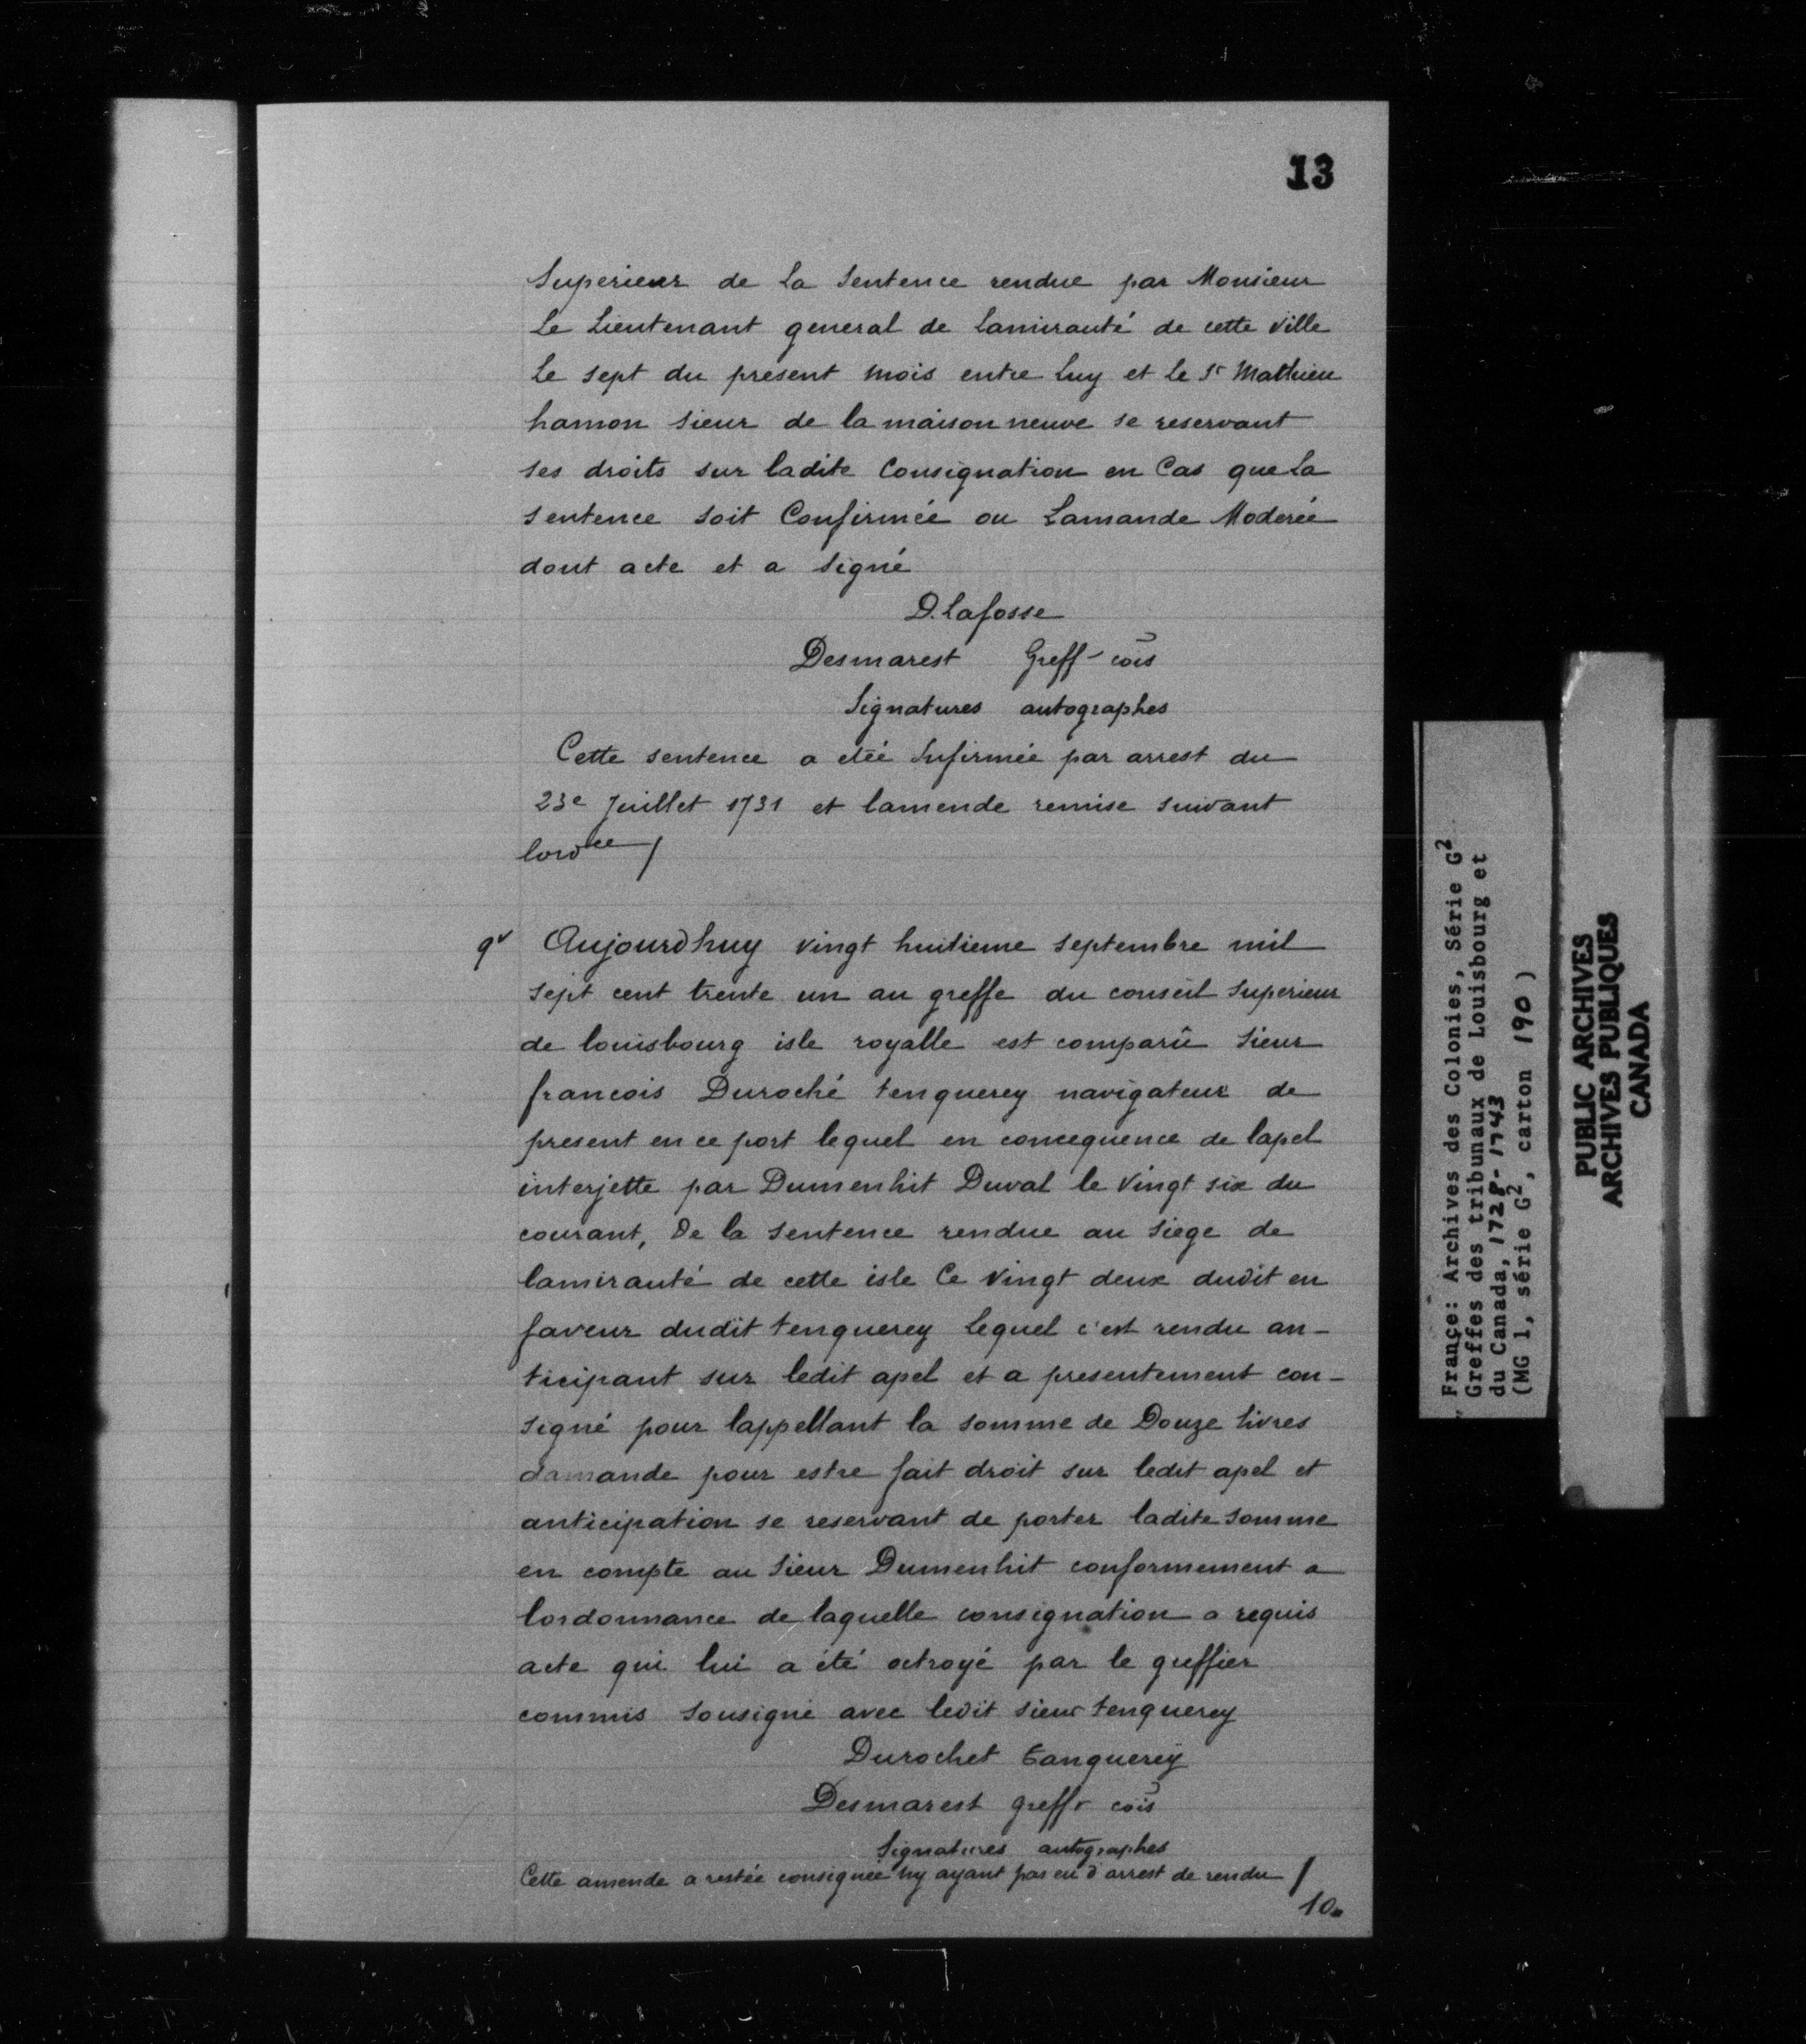 13
Superieur de La Sentence rendue par Monsieur
Le Lieutenant general de lamirauté de cette ville
Le sept du present mois entre Luy et Le Sr Mathieu
hamon sieur de la maison neuve se reservant
ses droits sur ladite Consignation en Cas que La
sentence soit Confirmée ou Lamande Moderée
dont acte et a signé
D. Lafosse
Desmarest Greff cois
Signatures autographes
Cette sentence a etéé Infirmée par arrest du
23e Juillet 1731 et lamende remise suivant
lordce /
9e Aujourdhuy vingt huitieme septembre mil
sept cent trente un au greffe du conseil Superieur
de louisbourg isle royalle est comparû Sieur
francois Duroché tenquerey navigateur de
present en ce port lequel en concequence de lapel
interjette par Dumenhit Duval le Vingt six du
courant, De la sentence rendue au siege de
lamirauté de cette isle Ce Vingt deux dudit en
faveur dudit tenquerey Lequel c'est rendu an-
ticipant sur ledit apel et a presentement con-
signé pour lappellant la somme de Douze livres
damande pour estre fait droit sur ledit apel et
anticipation se reservant de porter ladite somme
en compte au Sieur Dumenhit conformement a
lordonnance de laquelle consignation a requis
acte qui lui a été octroyé par le greffier
commis Sousigné avec ledit sieur tenquerey
Durochet tanquerey
Desmarest greffr cois
Signatures autographes
Cette amende a restée consignée ny ayant pas eu d'arrest de rendu /
10.
France: Archives des Colonies, Série G2
Greffes des tribunaux de Louisbourg et
du Canada, 1728-1743
(MG 1, série G2, carton 190)
PUBLIC ARCHIVES
ARCHIVES PUBLIQUES
CANADA